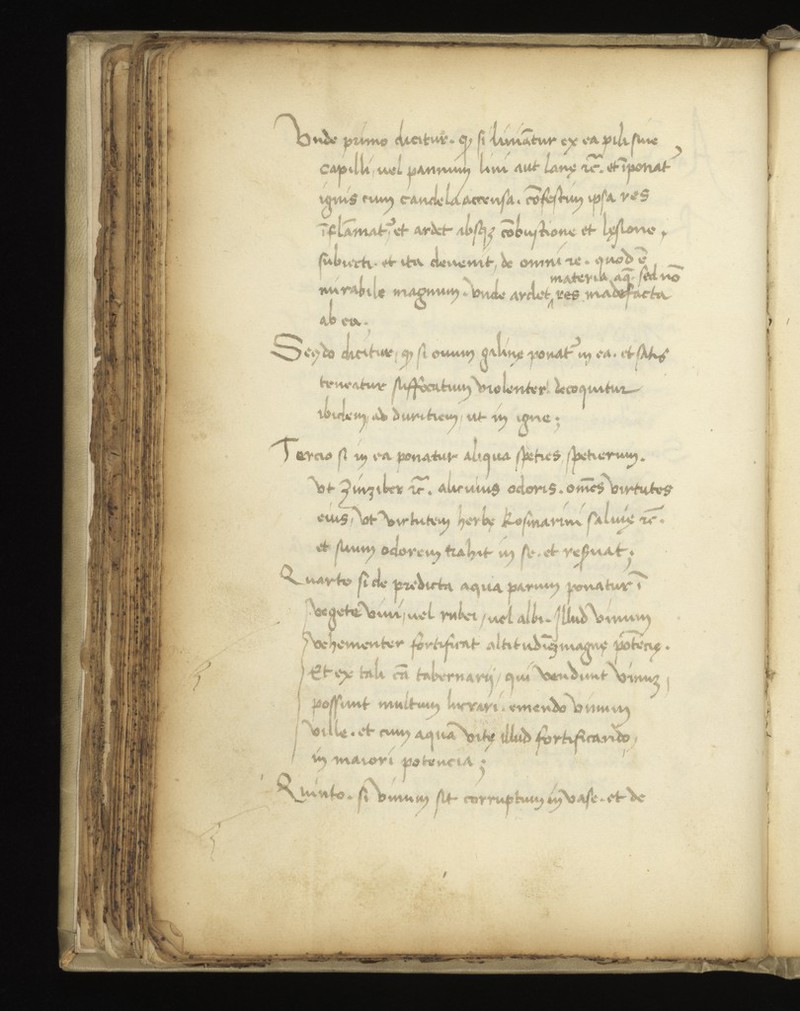 Vnde primo dicitur. ꝙ si liniātur ex ea pili siue
capilli, uel pannum lini aut lanę ⁊c̄. et īponat᷒
ignis cum candela accensa. cōfestim ipsa res
īflāmat᷒, et ardet absqꝫ cōbustione et lęsione,
subiecti. et ita deuenit, de omni re. quod ē
materia, aq̄. sed nō
mirabile magnum. Vnde ardet, ^ res madefacta
ab ea.
Secūdo dicitur, ꝙ si ouum galinę ponat᷒ in ea. et satis
teneatur suffocatum violenter decoquitur
ibidem, ad duritiem, ut in igne;
Tercio si in ea ponatur aliqua speties spetierum.
vt Zinziber ⁊c̄. alicuius odoris. om̄es virtutes
eius, vt virtutem herbę Rosmarini saluię ⁊c̄.
et suum odorem trahit in se. et reseruat;
Quarto si de predicta aqua parum ponatur ī
vegete vini, uel rubei, uel albi. Illud vinum
vehementer fortificat altitudīeꝫ magnę potēcię.
Et ex tali cā tabernarij, qui vendunt vinuꝫ,
possunt multum lucrari. emendo vinum
ville. et cum aqua vitę illud fortificando,
in maiori potencia;
Quinto. si vinum sit corruptum in vase. et de